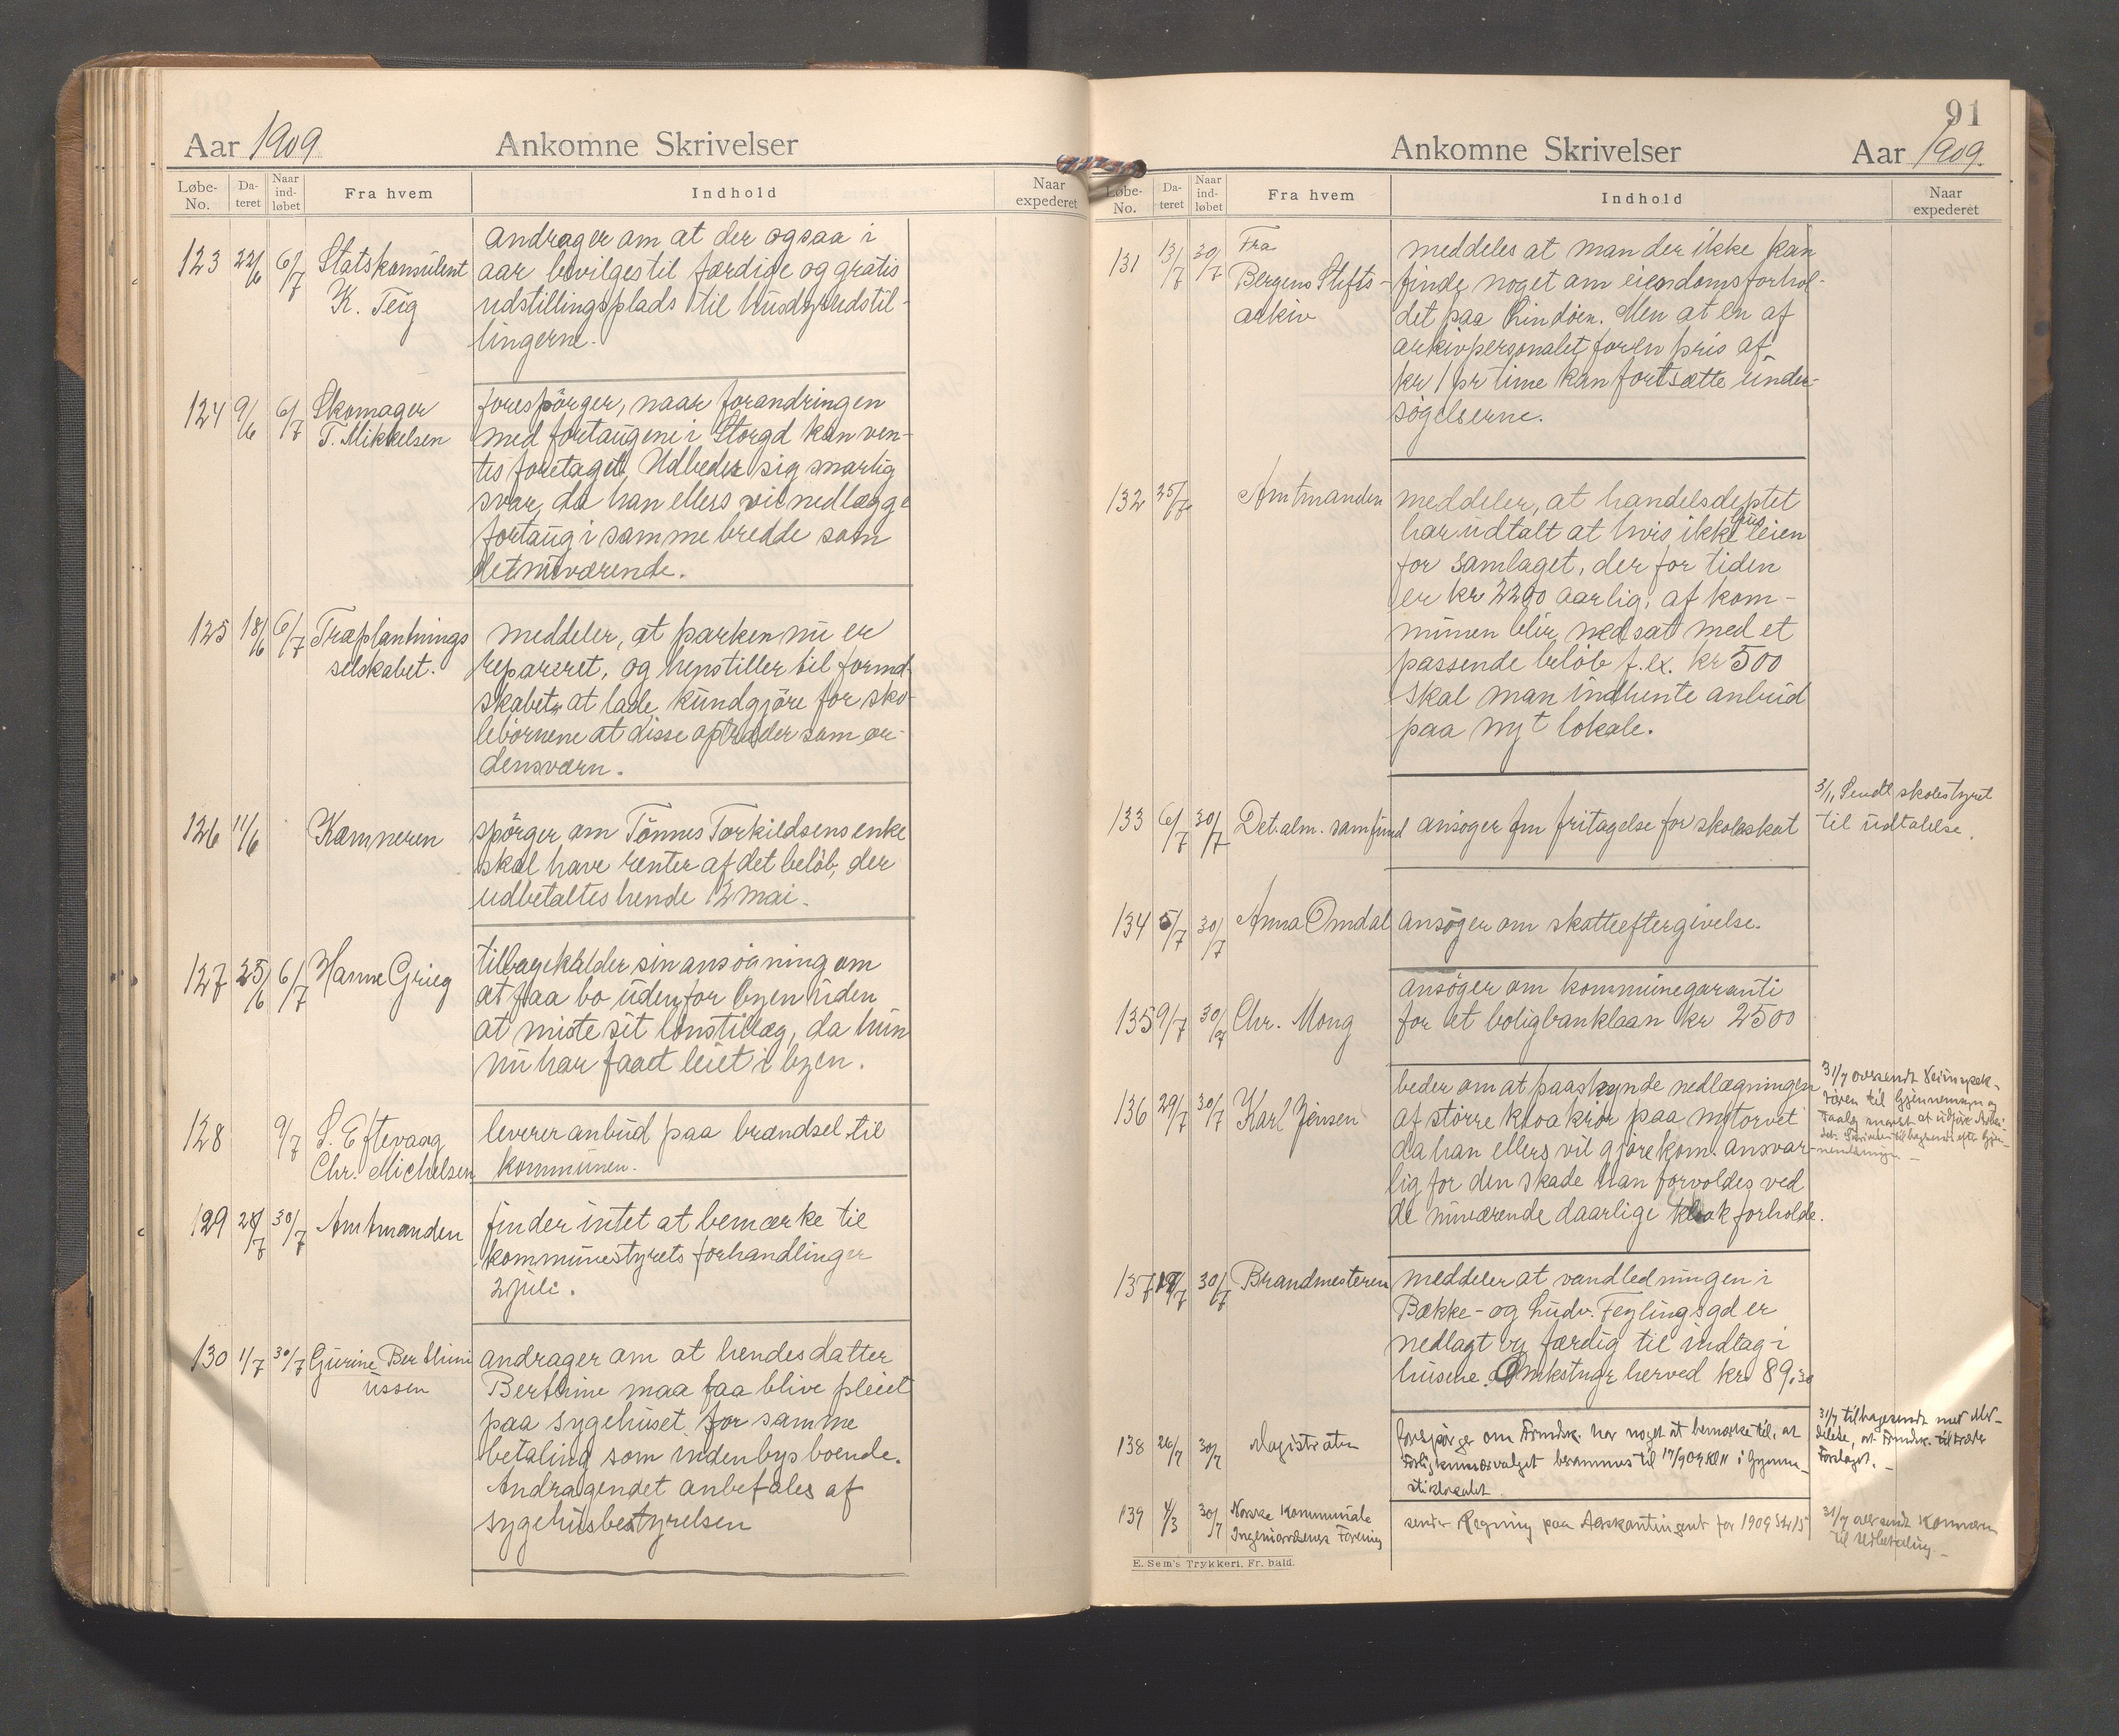 Aar 1909 Ankomne Skrivelser
Løbe-No. Da-teret Naar ind-løbet Fra hvem Indhold Naar expederet
123 22/6 6/7 Statskonsulent K. Teig
andrager om at der ogsaa i
aar bevilges til færdige og gratis
udstillingsplads til husdyrudstil-
lingerne.
124 9/6 6/7 Skomager T. Mikkelsen
forespörger, naar forandringen
med fortaugene i Storgd kan ven-
tes foretaget. Udbeder sig snarlig
svar, da han ellers vil nedlægge
fortaug i samme bredde som
det nuværende.
125 18/6 6/7 Træplantnings selskabet.
meddeler, at parken nu er
repareret, og henstiller til formd-
skabet at lade kundgjöre for sko-
lebörnene at disse optræder som or-
densværn.
126 11/6 Kæmneren
spörger om Tönnes Torkildsens enke
skal have renter af det belöb, der
udbetaltes hende 12 mai.
127 25/6 6/7 Hanne Grieg
tilbagekalder sin ansögning om
at faa bo udenfor byen uden
at miste sit lönstillæg, da hun
nu har faaet leiet i byen.
128 9/7 S. Eftevaag Chr. Michelsen
leverer anbud paa brændsel til
kommunen.
129 28/7 30/7 Amtmanden
finder intet at bemærke til
kommunestyrets forhandlinger
2 juli.
130 1/7 30/7 Gurine Berthini ussen
andrager om at hendes datter
Berthine maa faa blive pleiet
paa sygehuset for samme
betaling som indenbys boende.
Andragendet anbefales af
sygehusbestyrelsen
91
Ankomne Skrivelser Aar 1909.
Løbe-No. Da-teret Naar ind-løbet Fra hvem Indhold Naar expederet
131 13/7 30/7 Fra Bergens Stifts-arkiv
meddeles at man der ikke kan
finde noget om eiendomsforhol-
det paa Lindöen. Men at en af
arkivpersonalet for en pris af
kr 1 pr time kan fortsætte under-
sögelserne.
132 25/7 Amtmanden
meddeler, at handelsdeptet
har udtalt at hvis ikke husleien
for samlaget, der for tiden
er kr 2200 aarlig, af kom-
munen blir nedsat med et
passende belöb f. ex. kr 500
skal man indhente anbud
paa nyt lokale.
133 6/7 30/7 Det alm. samfund ansöger om fritagelse for skoleskat
3/11 Sendt skolestyret
til udtalelse.
134 5/7 30/7 Anna Omdal ansöger om skatteeftergivelse.
135 9/7 30/7 Chr. Mong
ansöger om kommunegaranti
for et boligbanklaan kr 2500
136 29/7 30/7 Karl Jensen
beder om at paaskynde nedlægningen
af större kloakrör paa nytorvet
da han ellers vil gjöre kom. ansvar-
lig for den skade han forvoldes ved
de nuværende daarlige kloakforholde.
31/7 oversendt Veiinspek-
tören til Gjennemsyn og
137 19/7 30/7 Brandmesteren
meddeler at vandledningen i
Bække- og Ludv. Feylingsgd er
nedlagt og færdig til indtag i
husene. Omkstngr herved kr 89.30
138 26/7 30/7 Magistraten
forespörger om Formdsk. har noget at bemærke til, at
Forligkomisærvalget berammes til 17/9 09 Kl 11 i Gymna-
stiklokalet.
31/7 tilbagesendt med Med-
delelse, at Formdsk. tiltræder
Forslaget.
139 4/3 30/7 Norske Kommunale Ingeniorvæsens Forening
sender Regning paa Aarskontingent for 1909 Kr 15
31/7 oversendt Kæmneren
til Udbetaling
E. Sem's Trykkeri, Fr. hald.